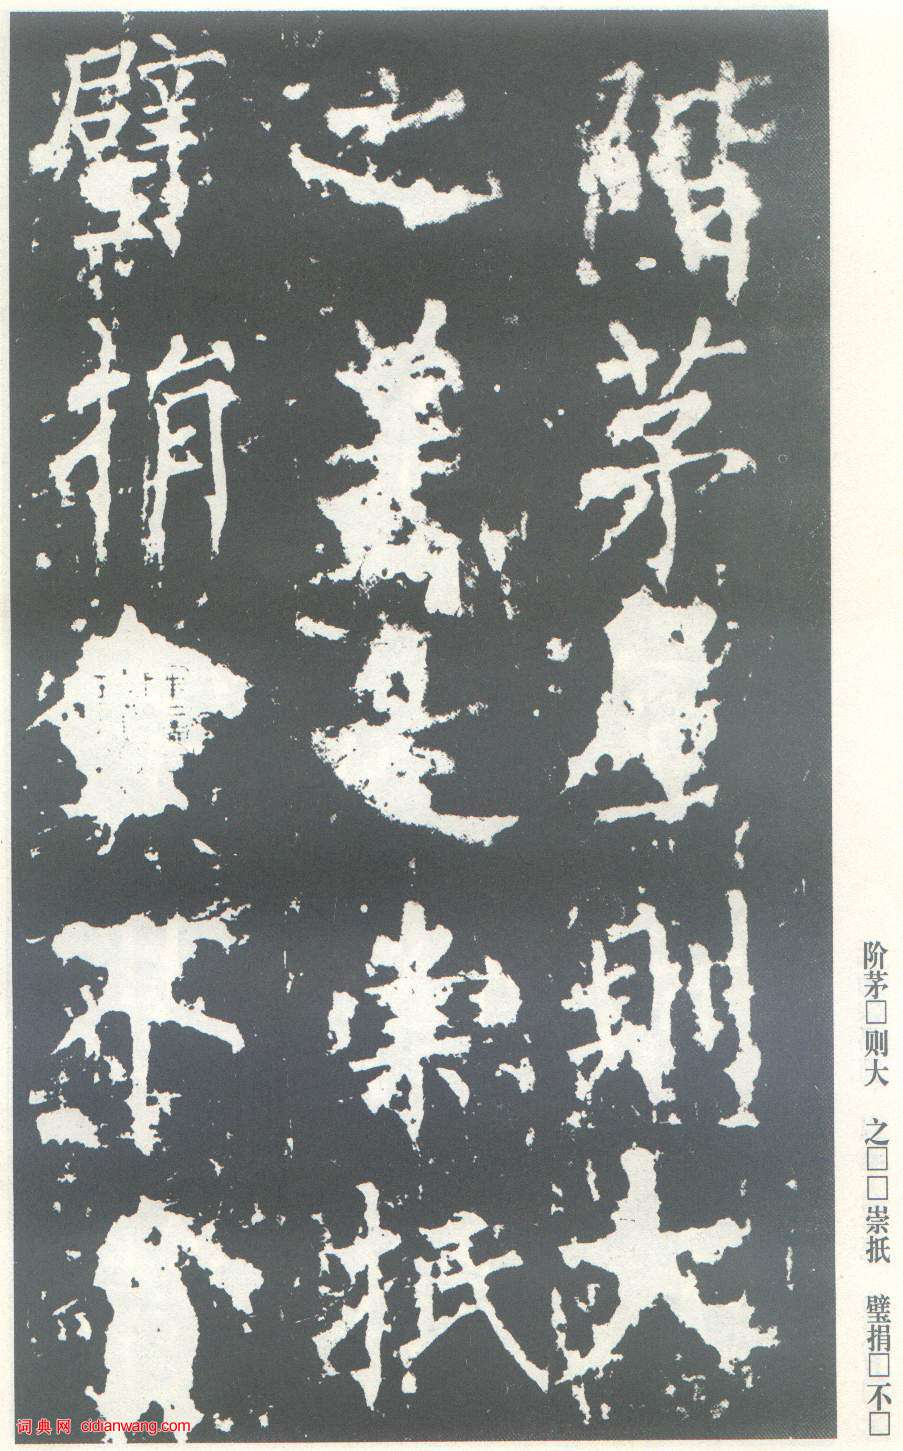 階茅則大
之崇抵
璧捐不
阶茅□则大 之□□崇抵 璧捐□不□
词典网 cidianwang.com